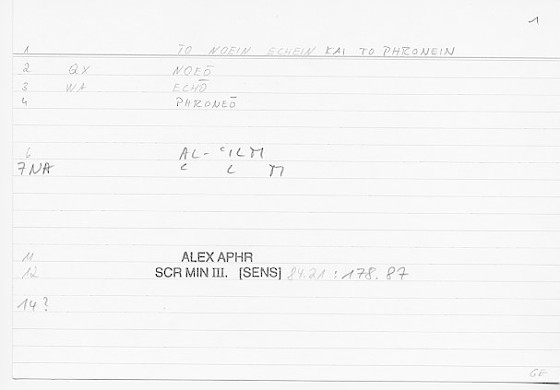 1
1 TO NOEIN ECHEIN KAI TO PHRONEIN
2 QX NOEŌ
3 WA ECHŌ
4 PHRONEŌ
6 AL- ʿILM
7 NA ʿ L M
11 ALEX APHR
12 SCR MIN III. [SENS] 84.21 : 178.87
14?
GE